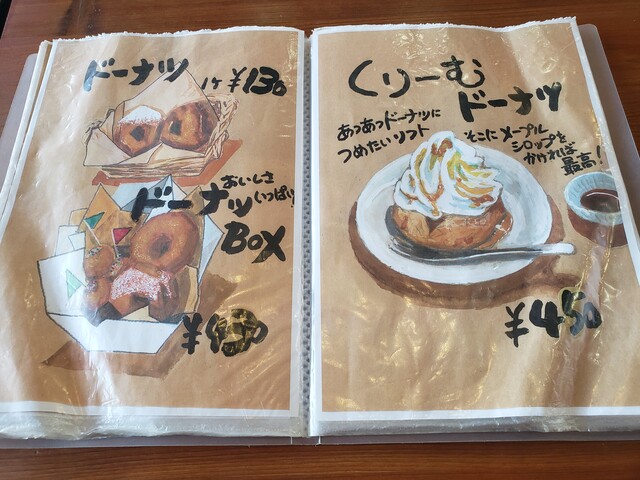 ドーナツ
1ケ ¥130
おいしさ
いっぱい!
ドーナツ
BOX
くりーむ
ドーナツ
あつあつドーナツに
つめたいソフト
そこにメープル
シロップを
かければ
最高!
¥450